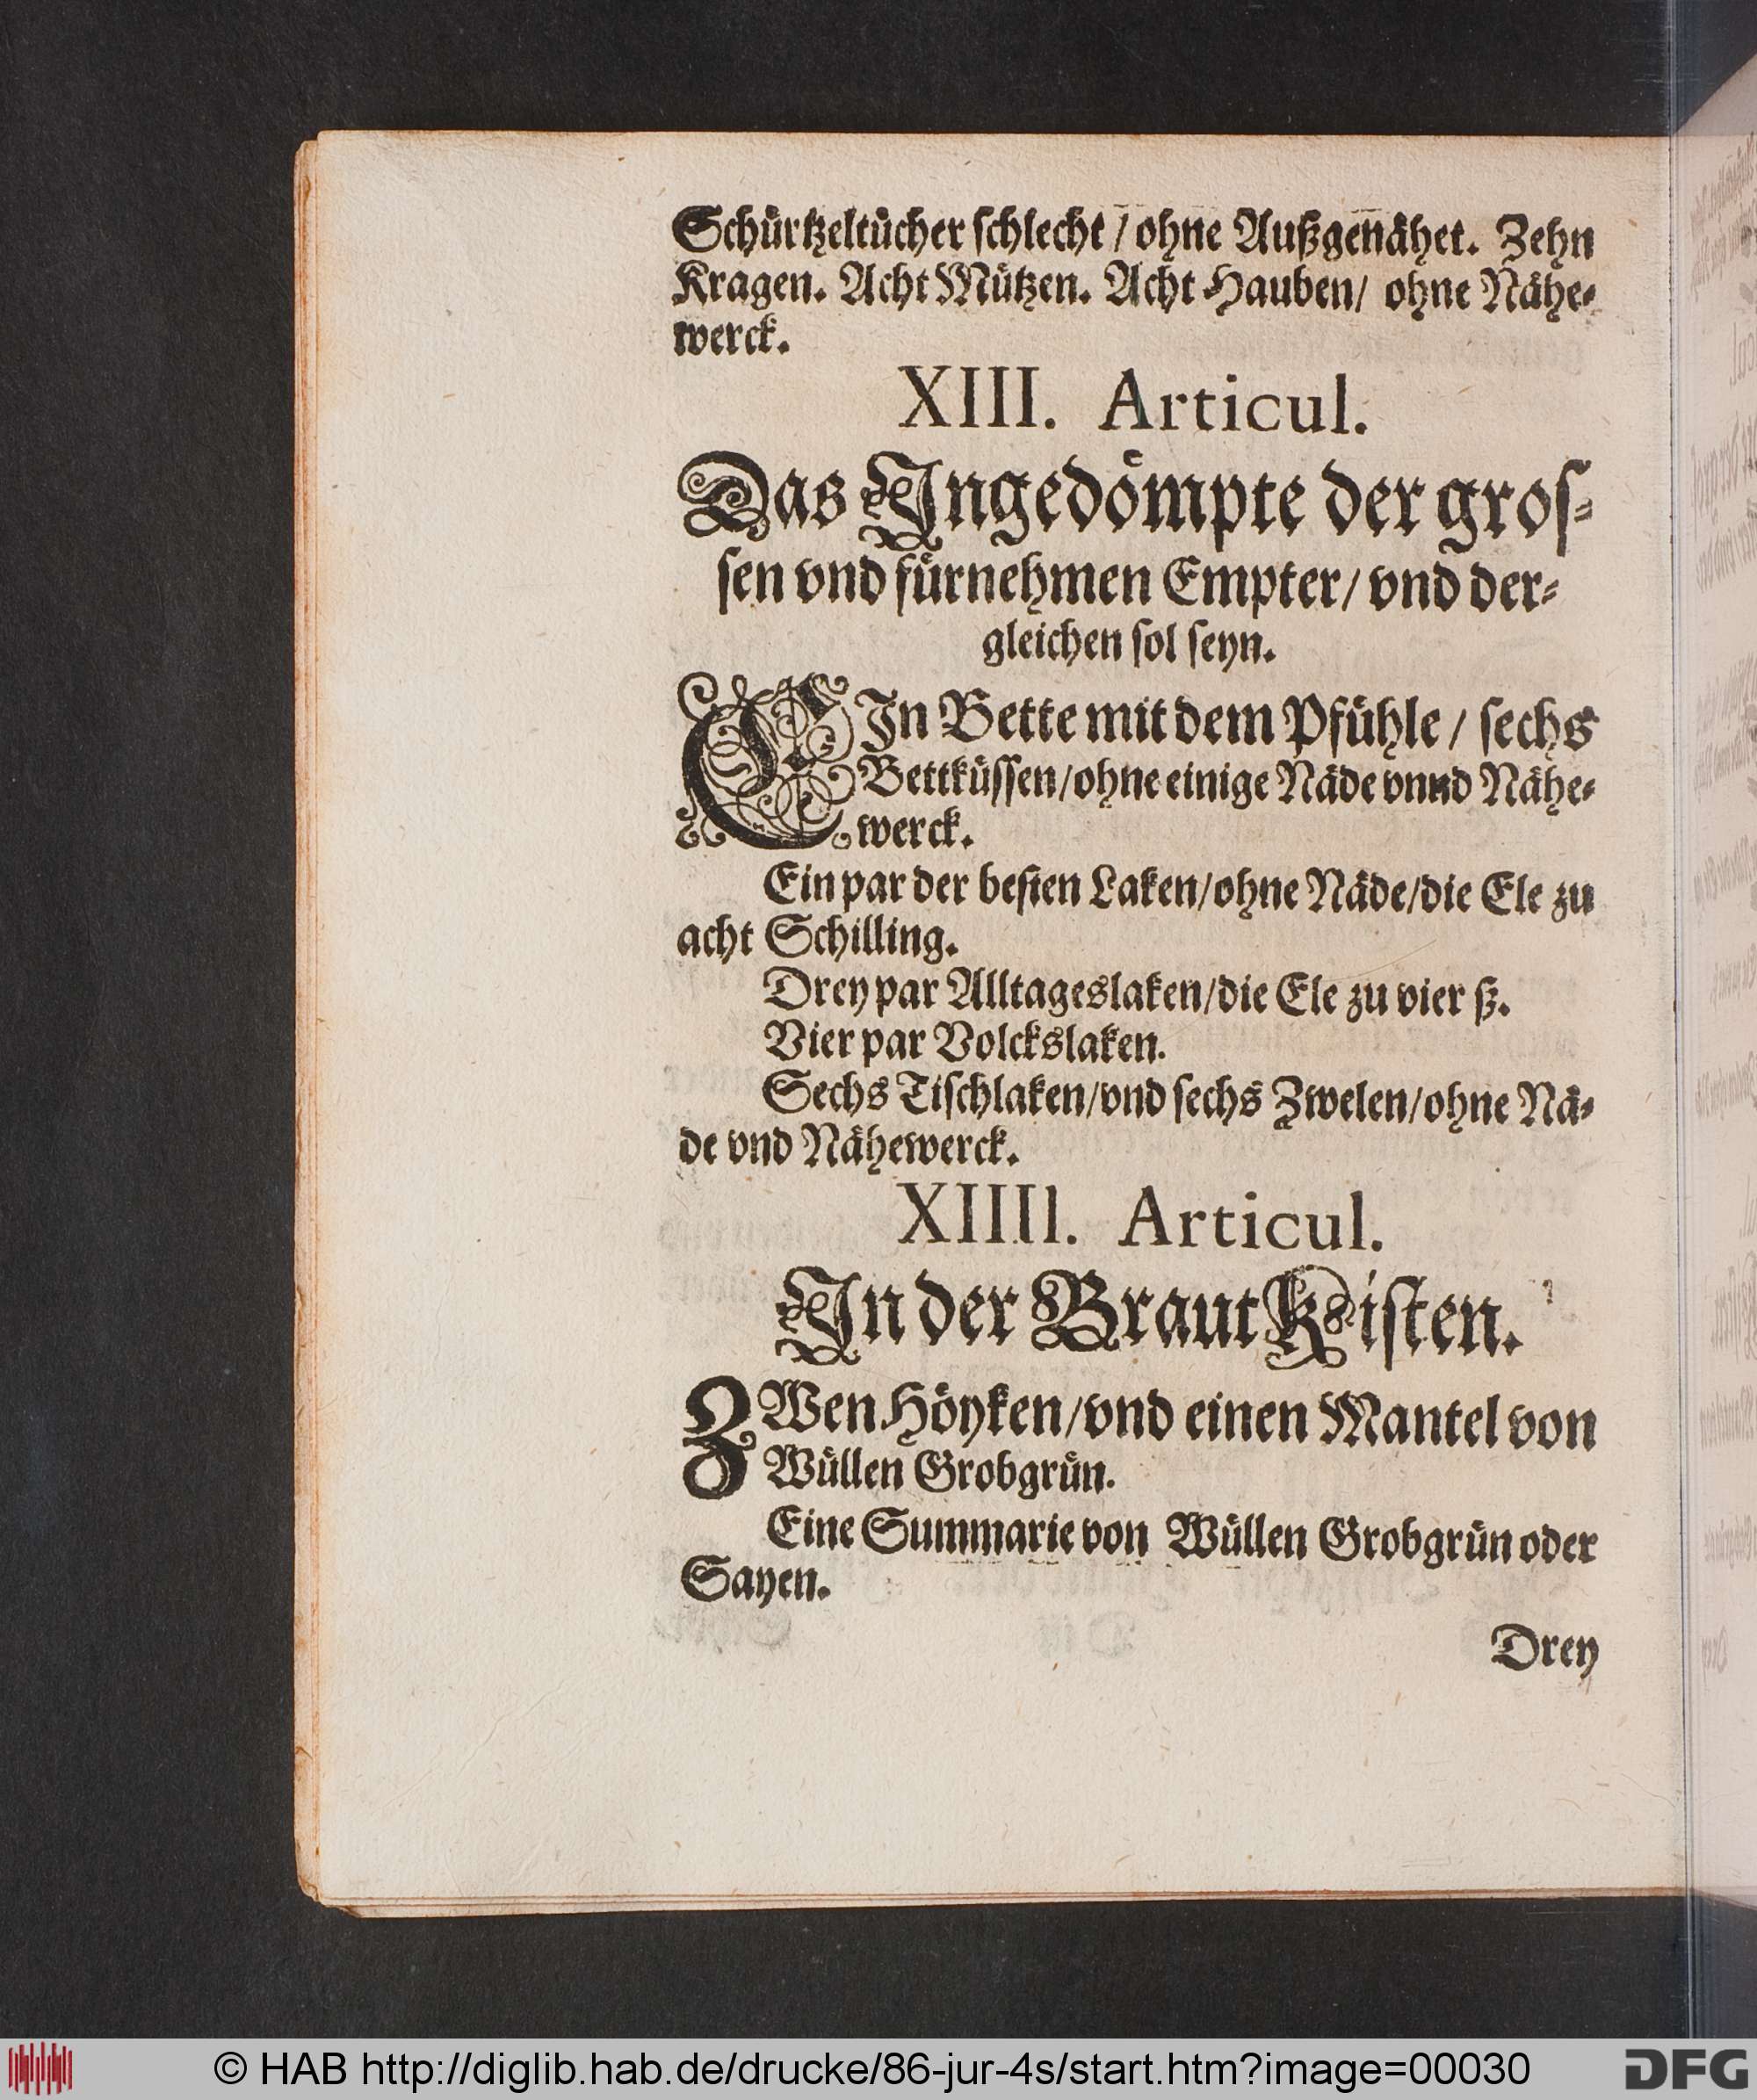 Schürtzeltücher schlecht / ohne Außgenähet. Zehn
Kragen. Acht Mützen. Acht Hauben/ ohne Nähe-
werck.
XIII. Articul.
Das Ingedömpte der gros-
sen vnd fürnehmen Empter/ vnd der-
gleichen sol seyn.
EIn Bette mit dem Pfühle / sechs
Bettküssen/ohne einige Näde vnnd Nähe-
werck.
Ein par der besten Laken/ohne Näde/die Ele zu
acht Schilling.
Drey par Alltageslaken/die Ele zu vier ß.
Vier par Volckslaken.
Sechs Tischlaken/vnd sechs Zwelen/ohne Nä-
de vnd Nähewerck.
XIIII. Articul.
In der Braut Kisten.
ZWen Höyken/vnd einen Mantel von
Wüllen Grobgrün.
Eine Summarie von Wüllen Grobgrün oder
Sayen.
Drey
© HAB http://diglib.hab.de/drucke/86-jur-4s/start.htm?image=00030
DFG